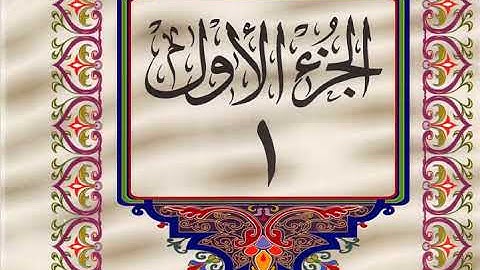 الجزء الأول
١